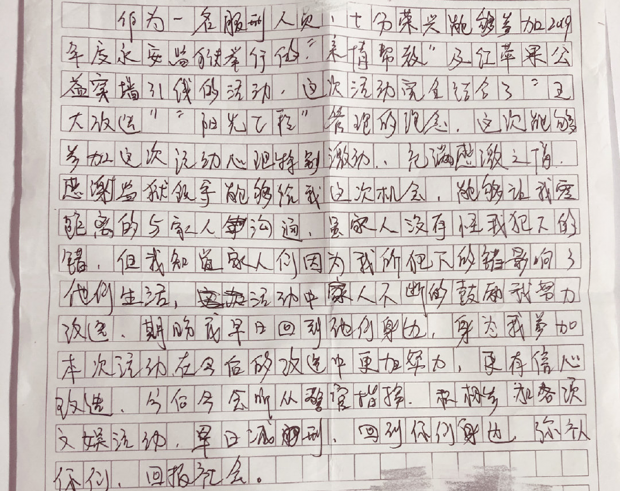 作为一名服刑人员，十分荣兴能够参加2019
年度永安监狱举行的“亲情帮教”及红苹果公
益实墙引线的活动，这次活动完全结合了“五
大改造”“阳光工程”管理的理念，这次能够
参加这次活动心理特别激动，充满感激之情，
感谢监狱级予能够给我这次机会，能够让我零
距离的与家人沟通，虽家人没有怪我犯下的
错，但我知道家人们因为我所犯下的错影响了
他们生活，活动中家人不断的鼓励我努力
改造，期盼我早日回到他们身边，身为我参加
本次活动在今后的改造中更加努力，更有信心
改造，今后会听从警官指挥，积极参加各项
文娱活动，早日减刑，回到你们身边，弥补
你们，回报社会。